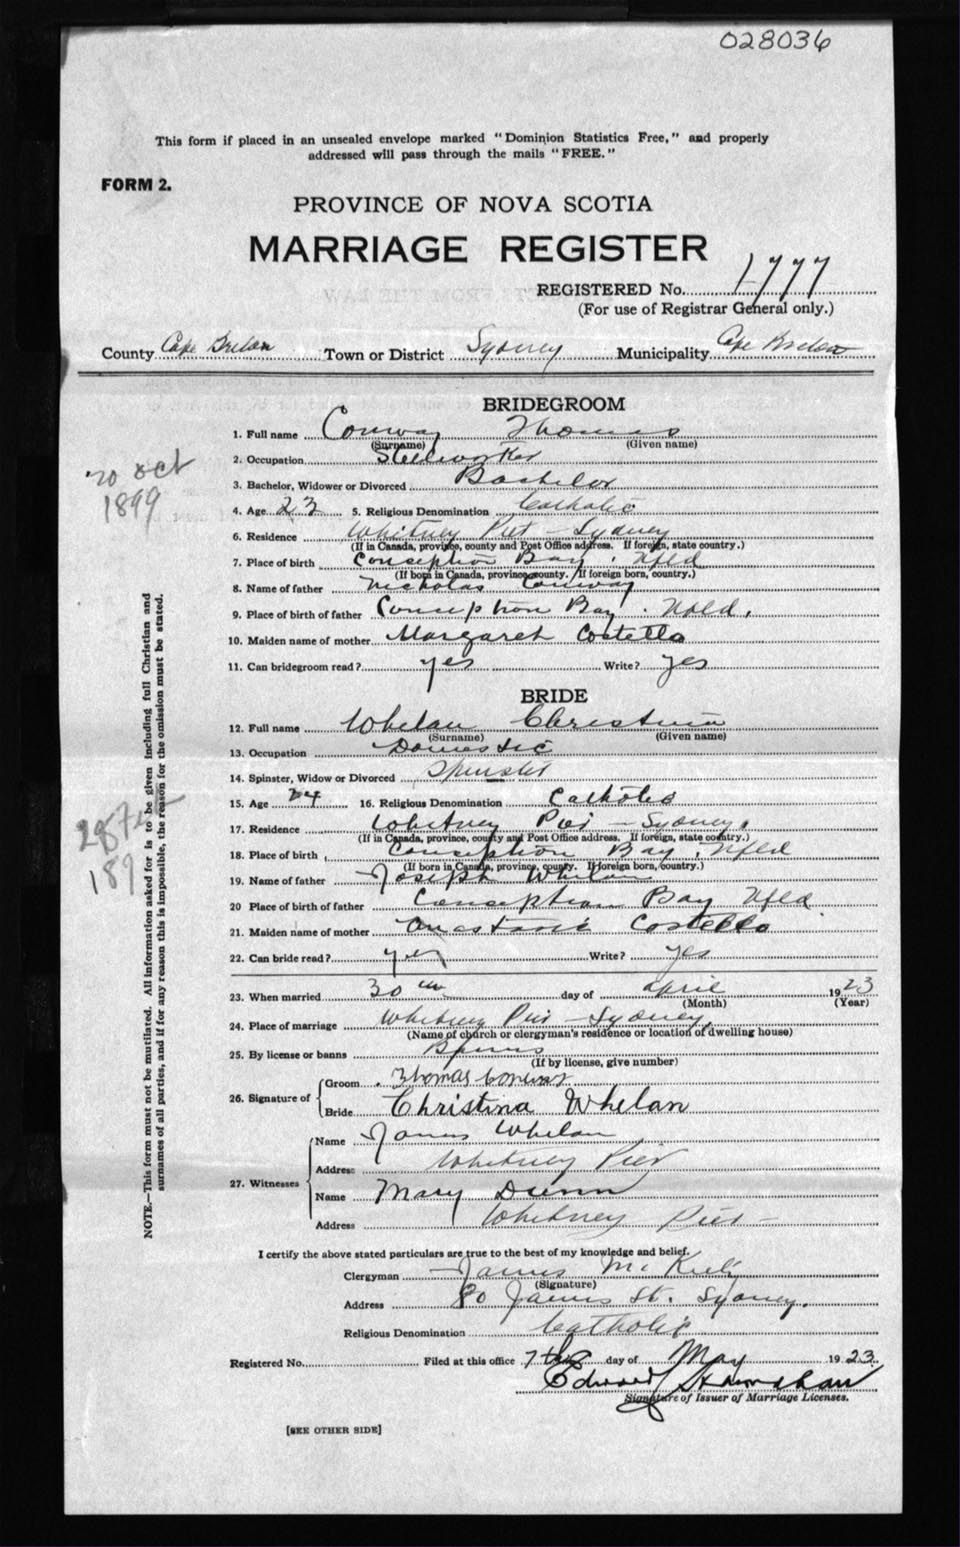 028036
This form if placed in an unsealed envelope marked "Dominion Statistics Free," and properly
addressed will pass through the mails "FREE."
FORM 2.
PROVINCE OF NOVA SCOTIA
MARRIAGE REGISTER
REGISTERED No. 1777
(For use of Registrar General only.)
County Cape Breton Town or District Sydney Municipality Cape Breton
BRIDEGROOM
1. Full name Conway Thomas
(Surname) (Given name)
2. Occupation Steelworker
3. Bachelor, Widower or Divorced Bachelor
20 Oct
1899
4. Age 23 5. Religious Denomination Catholic
6. Residence Whitney Pier - Sydney
(If in Canada, province, county and Post Office address. If foreign, state country.)
7. Place of birth Conception Bay, Nfld
(If born in Canada, province, county. If foreign born, country.)
8. Name of father Nicholas Conway
9. Place of birth of father Conception Bay. Nfld.
10. Maiden name of mother Margaret Costello
11. Can bridegroom read? yes Write? yes
BRIDE
12. Full name Whelan Christina
(Surname) (Given name)
13. Occupation Domestic
14. Spinster, Widow or Divorced Spinster
15. Age 24 16. Religious Denomination Catholic
17. Residence Whitney Pier - Sydney.
(If in Canada, province, county and Post Office address. If foreign, state country.)
18. Place of birth Conception Bay, Nfld
(If born in Canada, province, county. If foreign born, country.)
19. Name of father Joseph Whelan
20 Place of birth of father Conception Bay Nfld
21. Maiden name of mother Costello
22. Can bride read? yes Write? yes
23. When married 30th day of April 1923
(Month) (Year)
24. Place of marriage Whitney Pier - Sydney
(Name of church or clergyman's residence or location of dwelling house)
25. By license or banns Banns
(If by license, give number)
26. Signature of Groom Thomas Conway
Bride Christina Whelan
27. Witnesses Name James Whelan
Address Whitney Pier
Name Mary Dunn
Address Whitney Pier -
I certify the above stated particulars are true to the best of my knowledge and belief.
Clergyman James
(Signature)
Address 80 James St. Sydney.
Religious Denomination Catholic
Registered No. Filed at this office 7th day of May 1923.
Edward
Signature of Issuer of Marriage Licenses.
[SEE OTHER SIDE]
NOTE.—This form must not be mutilated. All information asked for is to be given including full Christian and
surnames of all parties, and if for any reason this is impossible, the reason for the omission must be stated.